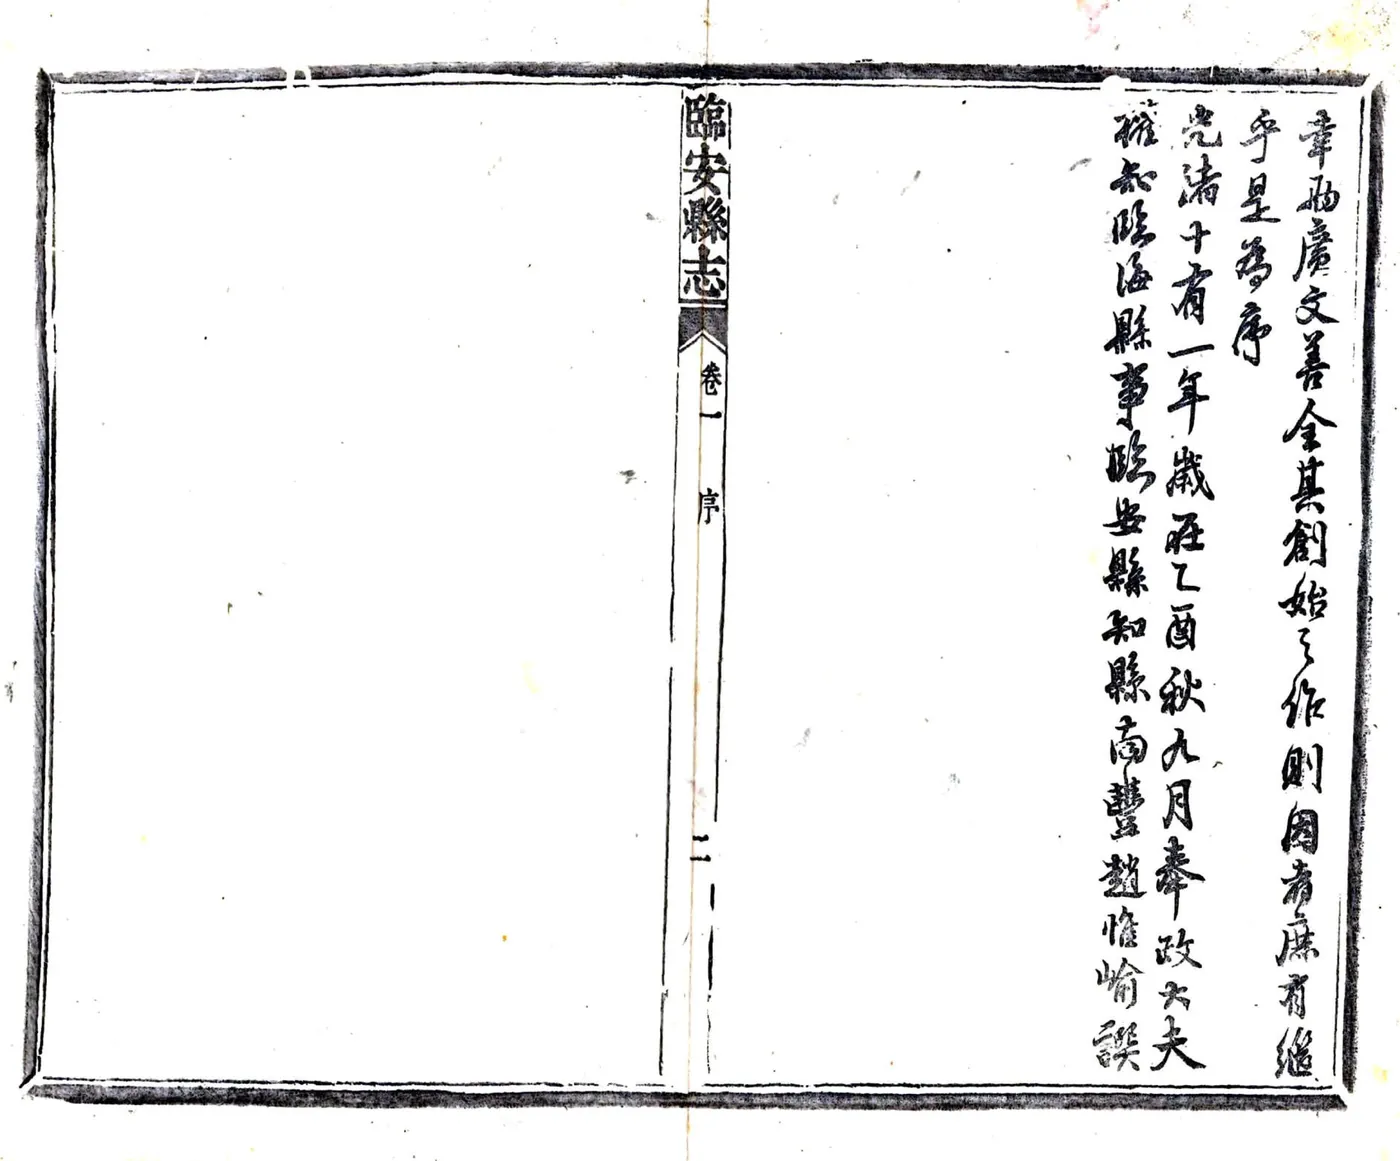 幸勷廣文善全其創始之作則因者庶有繼
乎是為序
光緒十有一年歲在乙酉秋九月奉政大夫
權知臨海縣事臨安縣知縣南豐趙惟崳譔
臨安縣志
卷一
序
二